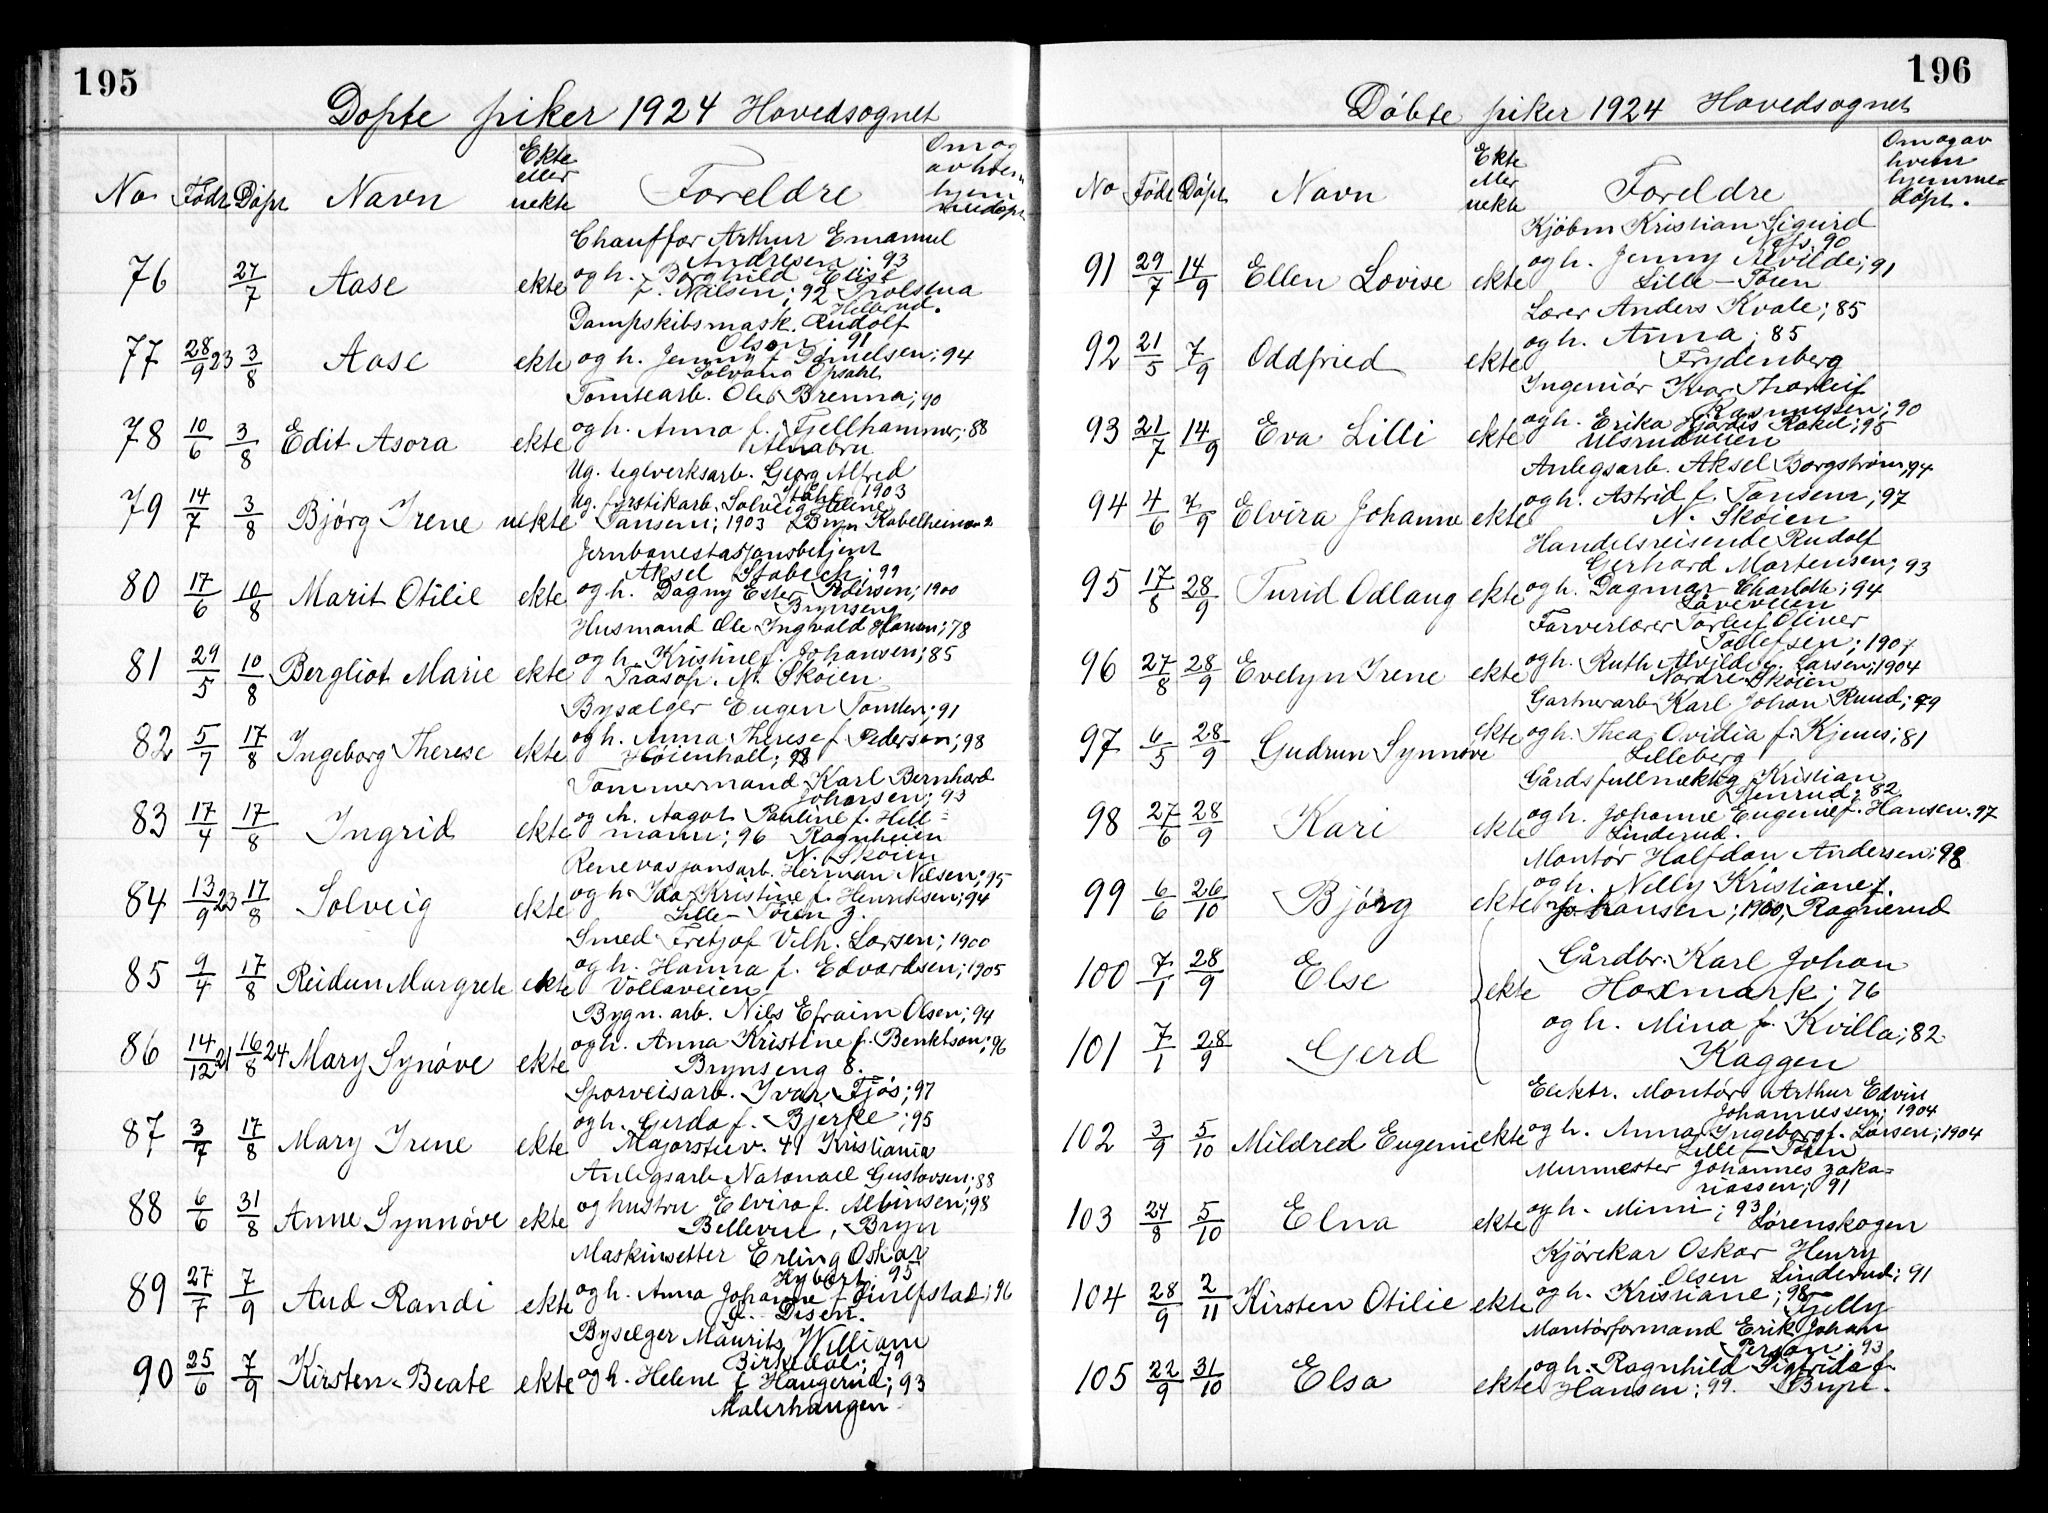 195
Døpte piker 1924 Hovedsognet
No Født Døpt Navn Ekte eller uekte Foreldre Om og av hvem hjemmedøpt
Chauffør Arthur Emanuel
Andresen; 93
76 27/7 Aase ekte og h. Borghild Elise
f. Nilsen; 92
Dampskibsmask. Rudolf
Olsen; 91
77 28/9 23 3/8 Aase ekte og h. Jenny f. Danielsen; 94
Solvang Opsahl
Tomtearb. Ole Brenna; 90
78 10/6 3/8 Edit Asora ekte og h. Anna f. Fjellhammer; 88
Alnabru
Ug. teglverksarb. Georg Alfred
Stahl 1903
79 14/7 3/8 Bjørg Irene uekte Ug. fyrstikarb. Solveig Helene
Jansen; 1903 Bryn Kabelheimen 2
Jernbanestasjonsbetjent
Aksel Stabech; 99
80 17/6 10/8 Marit Otilie ekte og h. Dagny Ester Pedersen; 1900
Brynseng
Husmand Ole Ingvald Hansen; 78
81 29/5 10/8 Bergliot Marie ekte og h. Kristine f. Johansen; 85
Trasop. N. Skøien
Bysælger Eugen Tomter; 91
82 5/7 17/8 Ingeborg Therese ekte og h. Anna Therese f. Pederson; 98
Høienhall; 98
Tømmermand Karl Bernhard
Johansen; 93
83 17/4 17/8 Ingrid ekte og h. Aagot Pauline f. Hell-
mann; 96 Ragnheien
N. Skøien
Renovasjonsarb. Herman Nilsen; 95
84 13/9 23 17/8 Solveig ekte og h. Ida Kristine f. Henriksen; 94
Lille-Tøien g.
Smed Fretjof Vilh. Larsen; 1900
85 9/4 17/8 Reidun Margrete ekte og h. Hanna f. Edvardsen; 1905
Vollaveien
Bygn. arb. Nils Efraim Olsen; 94
86 14/12 21 16/8 24 Mary Synøve ekte og h. Anna Kristine f. Benktson; 96
Brynseng 8.
Sporveisarb. Ivar Fjøs; 97
87 3/7 17/8 Mary Irene ekte og h. Gerda f. Bjerke; 95
Majorstuv. 41 Kristiania
Anlegsarb Natanael Gustavsen; 88
88 6/6 31/8 Anne Synnøve ekte og hustru Elvira f. Albinsen; 98
Bellevue, Bryn
Maskinsetter Erling Oskar
Nybert; 95
89 27/7 7/9 Aud Randi ekte og h. Anna Johanne f. 96
Disen.
Bysælger Maurits William
Birkedal; 79
90 25/6 7/9 Kirsten Beate ekte og h. Helene f. Haugerud; 93
Malerhaugen
196
Døbte piker 1924 Hovedsognet
No Født Døpt Navn Ekte eller uekte Foreldre Om og av hvem hjemmedøpt.
Kjøbm Kristian Sigurd
Næss. 90
91 29/7 14/9 Ellen Lovise ekte og h. Jenny Alvilde; 91
Lille-Tøien
Lærer Anders Kvale; 85
92 21/5 7/9 Oddfried ekte og h. Anna; 85
Frydenberg
Ingeniør Ivar Thorleif
Rasmussen; 90
93 21/7 14/9 Eva Lilli ekte og h. Erika Hjørdis Rakel; 95
Ulsrudveien
Anlegsarb. Aksel Borgstrøm; 94
94 4/6 7/9 Elvira Johanne ekte og h. Astrid f. Jansen; 97
N. Skøien
Handelsreisende Rudolf
Gerhard Mortensen; 93
95 17/8 28/9 Turid Odlaug ekte og h. Dagmar Charlotte; 94
Løveveien
Farverlærer Torleif Oliver
Tollefsen; 1901
96 27/8 28/9 Evelyn Irene ekte og h. Ruth Alvilde f. Larsen; 1904
Nordre Skøien
Gartnerarb Karl Johan Ruud; 79
97 6/5 28/9 Gudrun Synnøve ekte og h. Thea Ovidia f. Kjenus; 81
Lilleberg
Gårdsfullmektig Kristian
Stenrud; 82
98 27/6 28/9 Kari ekte og h. Johanne Eugenie f. Hansen. 97
Linderud.
Montør Halfdan Andersen; 98
99 6/6 26/10 Bjørg ekte og h. Nelly Kristiane f.
Johansen; 1900, Ragnerud
100 7/1 28/9 Else
Gårdbr. Karl Johan
ekte Hoxmark; 76
og h. Mina f. Kvilla; 82
101 7/1 28/9 Gerd
Kaggen
Elektr. Montør Arthur Edvin
Johannessen; 1904
102 3/9 5/10 Mildred Eugenie ekte og h. Anna Ingeborg f. Larsen; 1904
Lille-Tøien
Murmester Johannes Zaka-
riassen; 91
103 24/8 5/10 Elna ekte og h. Mimi; 93
Lørenskogen
Kjørekar Oskar Henry
Olsen Linderud; 91
104 28/9 2/11 Kirsten Otilie ekte og h. Kristiane; 98
Tjelly
Montørformand Erik Johan
Person; 93
105 22/9 31/10 Elsa ekte og h. Ragnhild Sigfrida f.
Hansen; 99. Bryn.